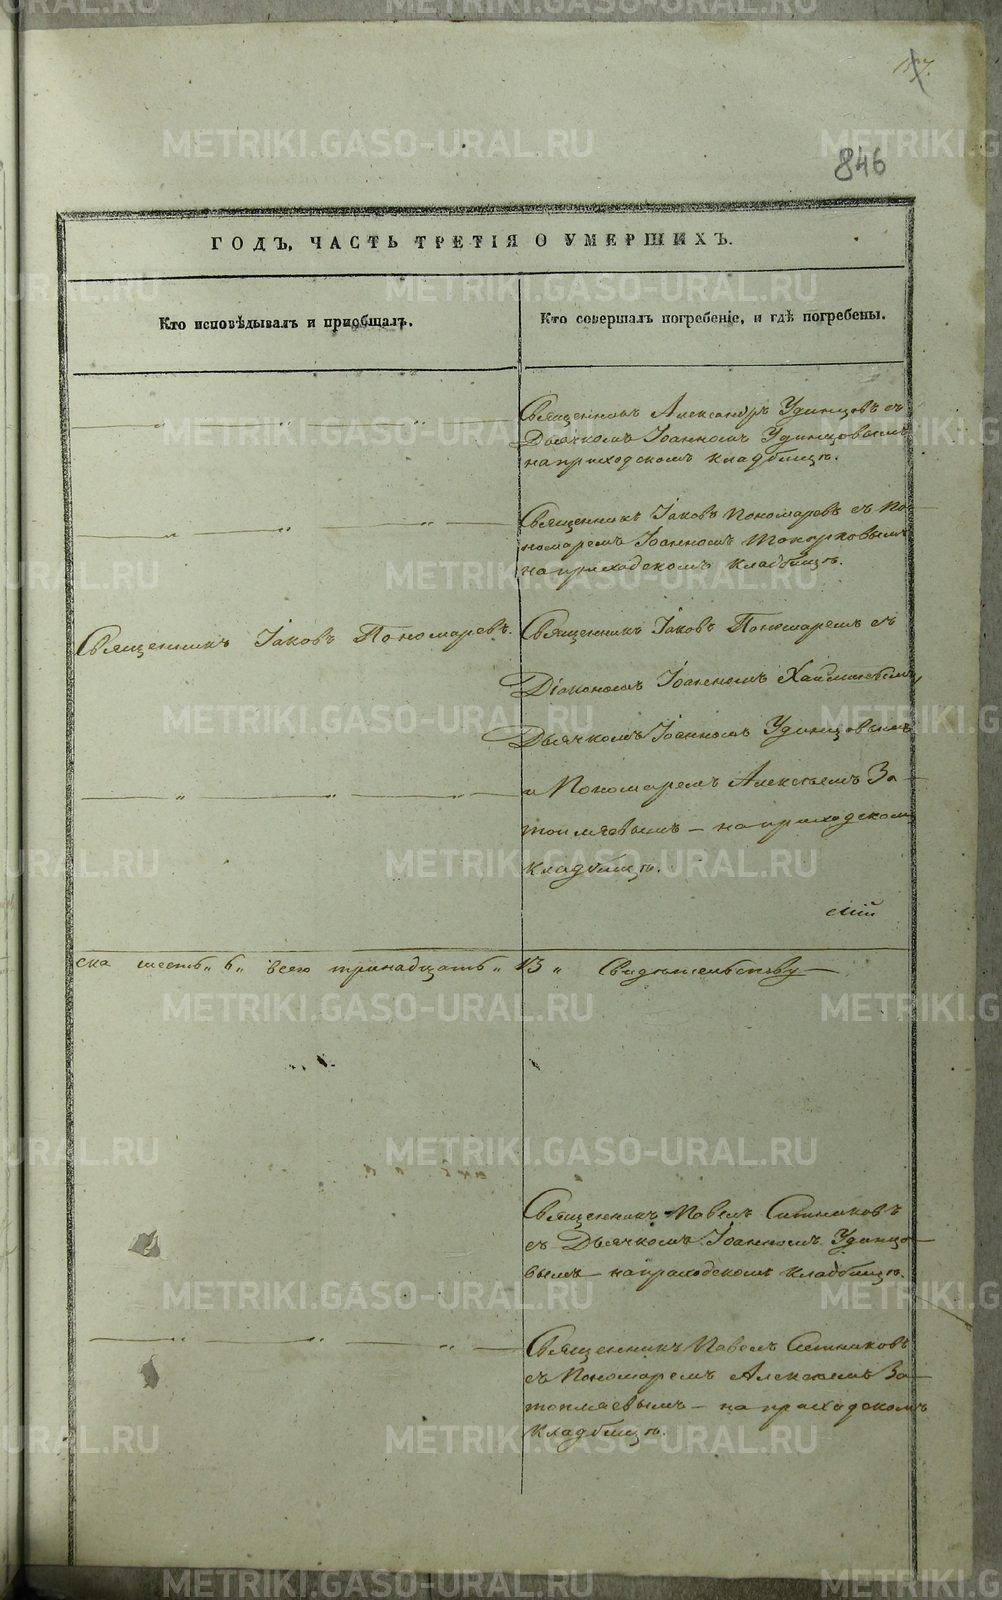 157.
846
ГОДЪ, ЧАСТЬ ТРЕТІЯ О УМЕРШИХЪ.
Кто исповѣдывалъ и пріобщалъ.
Кто совершалъ погребеніе, и гдѣ погребены.
Священникъ Александръ Удинцовъ съ
Дьячкомъ Іоанномъ Удинцовымъ
на приходскомъ кладбищѣ.
Священникъ Іаковъ Пономаревъ съ По-
номаремъ Іоанномъ Топорковымъ
на приходскомъ кладбищѣ.
Священникъ Іаковъ Пономаревъ.
Священникъ Іаковъ Пономаревъ съ
Діакономъ Іоанномъ
Дьячкомъ Іоанномъ Удинцовымъ
и Пономаремъ Алексѣемъ За-
топляевымъ – на приходскомъ
кладбищѣ.
ска шесть „ 6 „ всего тринадцать „ 13 „ Свидѣтельству
Священникъ Павелъ Ситниковъ
съ Дьячкомъ Іоанномъ Удинцо-
вымъ на приходскомъ кладбищѣ.
Священникъ Павелъ Ситниковъ
съ Пономаремъ Алексѣемъ За-
топляевымъ – на приходскомъ
кладбищѣ.
METRIKI.GASO-URAL.RU